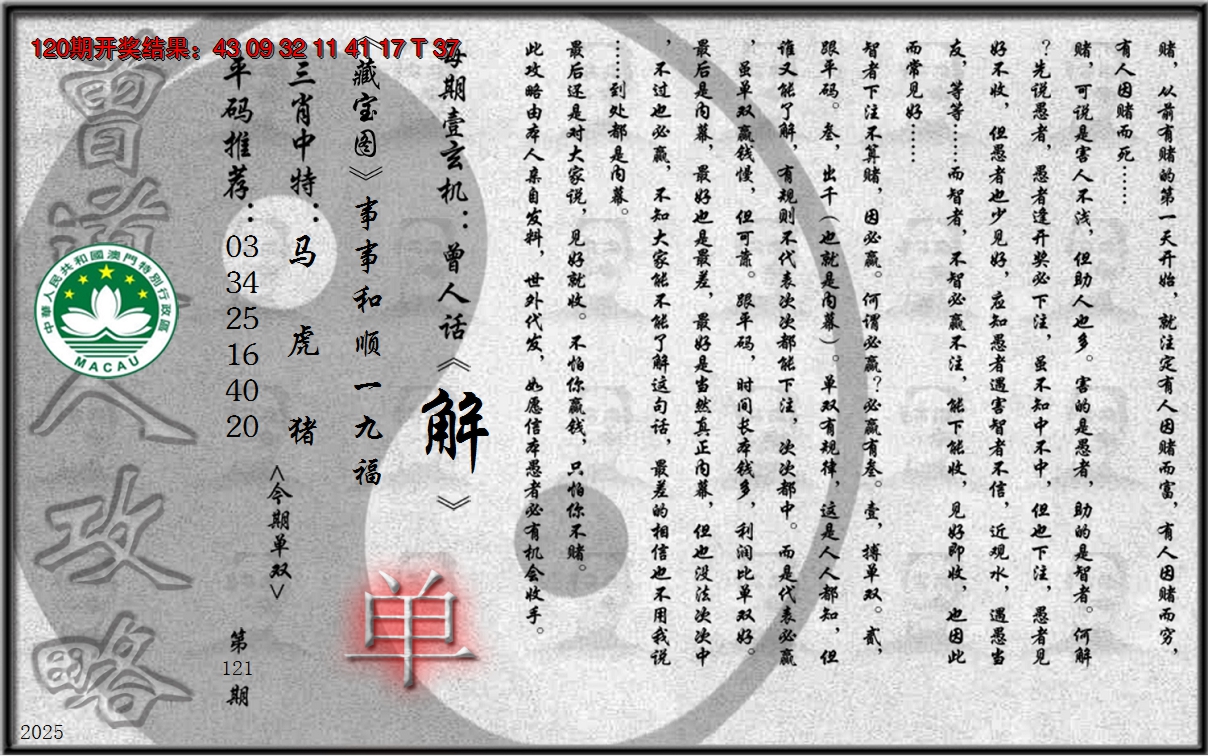 120期开奖结果：43 09 32 11 41 17 T 37
赌，从前有赌的第一天开始，就注定有人因赌而富，有人因赌而穷，
有人因赌而死……
赌，可说是害人不浅，但助人也多。害的是愚者，助的是智者。何解
？先说愚者，愚者逢开奖必下注，虽不知中不中，但也下注，愚者见
好不收，但愚者也少见好，应知愚者遇害智者不信，近观水，遇愚当
友，等等……而智者，不智必赢不注，能下能收，见好即收，也因此
而常见好……
智者下注不算赌，因必赢。何谓必赢？必赢有叁。壹，搏单双。贰，
跟平码。叁，出千（也就是内幕）。单双有规律，这是人人都知，但
谁又能了解，有规则不代表次次都能下注，次次都中。而是代表必赢
，虽单双赢钱慢，但可靠。跟平码，时间长本钱多，利润比单双好。
最后是内幕，最好也是最差，最好是当然真正内幕，但也没法次次中
，不过也必赢，不知大家能不能了解这句话，最差的相信也不用我说
……到处都是内幕。
最后还是对大家说，见好就收。不怕你赢钱，只怕你不赌。
此攻略由本人亲自发料，世外代发，如愿信本愚者必有机会收手。
每期壹玄机：曾人话《解》
《藏宝图》事事和顺一九福
单
三肖中特：马 虎 猪
<今期单双>
平码推荐：03 34 25 16 40 20
第121期
曾道人攻略
中華人民共和國澳門特別行政區
MACAU
2025